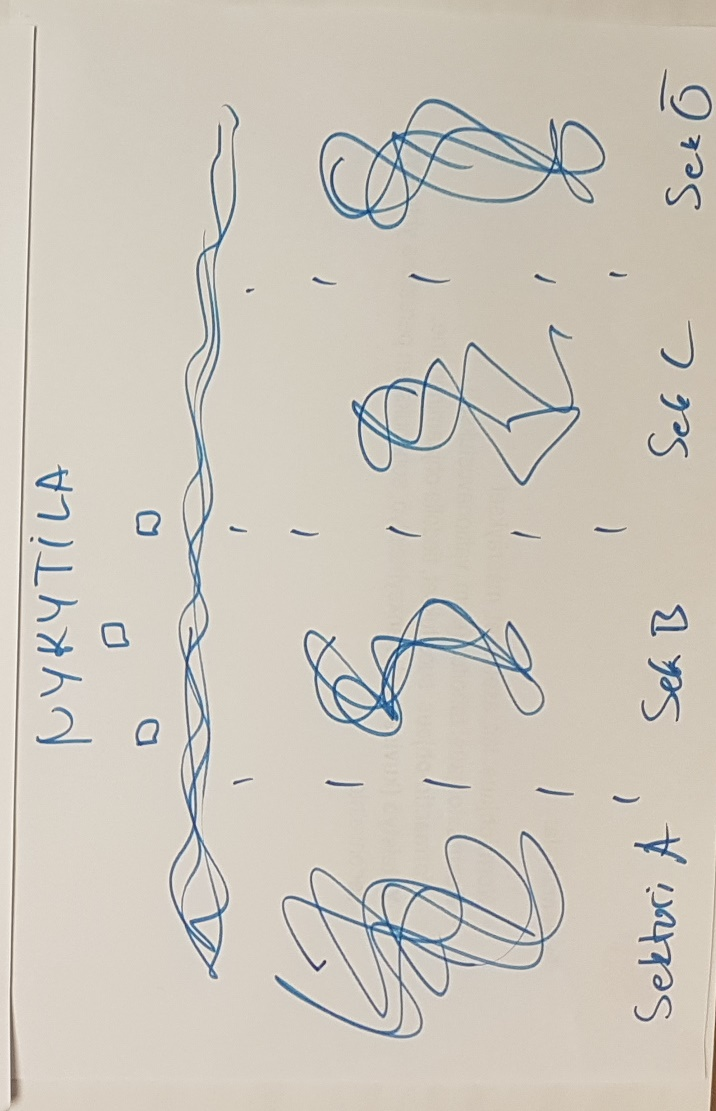 NYKYTILA
Sektori A
Sek B
Sek C
Sek D